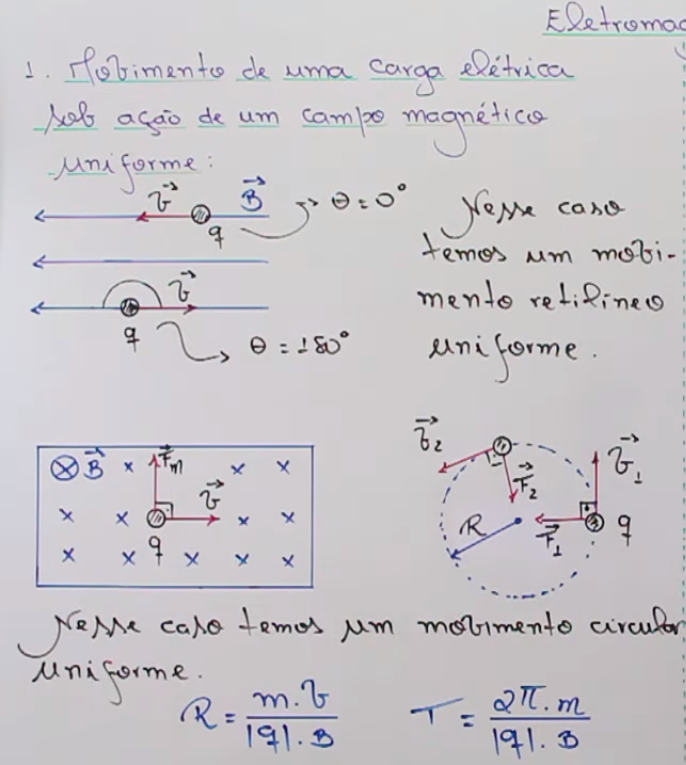 Eletromag
1. Movimento de uma carga elétrica
sob ação de um campo magnético
uniforme:
v⃗ B⃗ θ = 0°
q
v⃗
q θ = 180°
Nesse caso
temos um movi-
mento retilíneo
uniforme.
⊗ B⃗ x F⃗m x x
x x v⃗ x x
q
x x x x x
v⃗2 F⃗2 v⃗1
R F⃗1 q
Nesse caso temos um movimento circular
uniforme.
R = m.v / |q|.B T = 2π.m / |q|.B